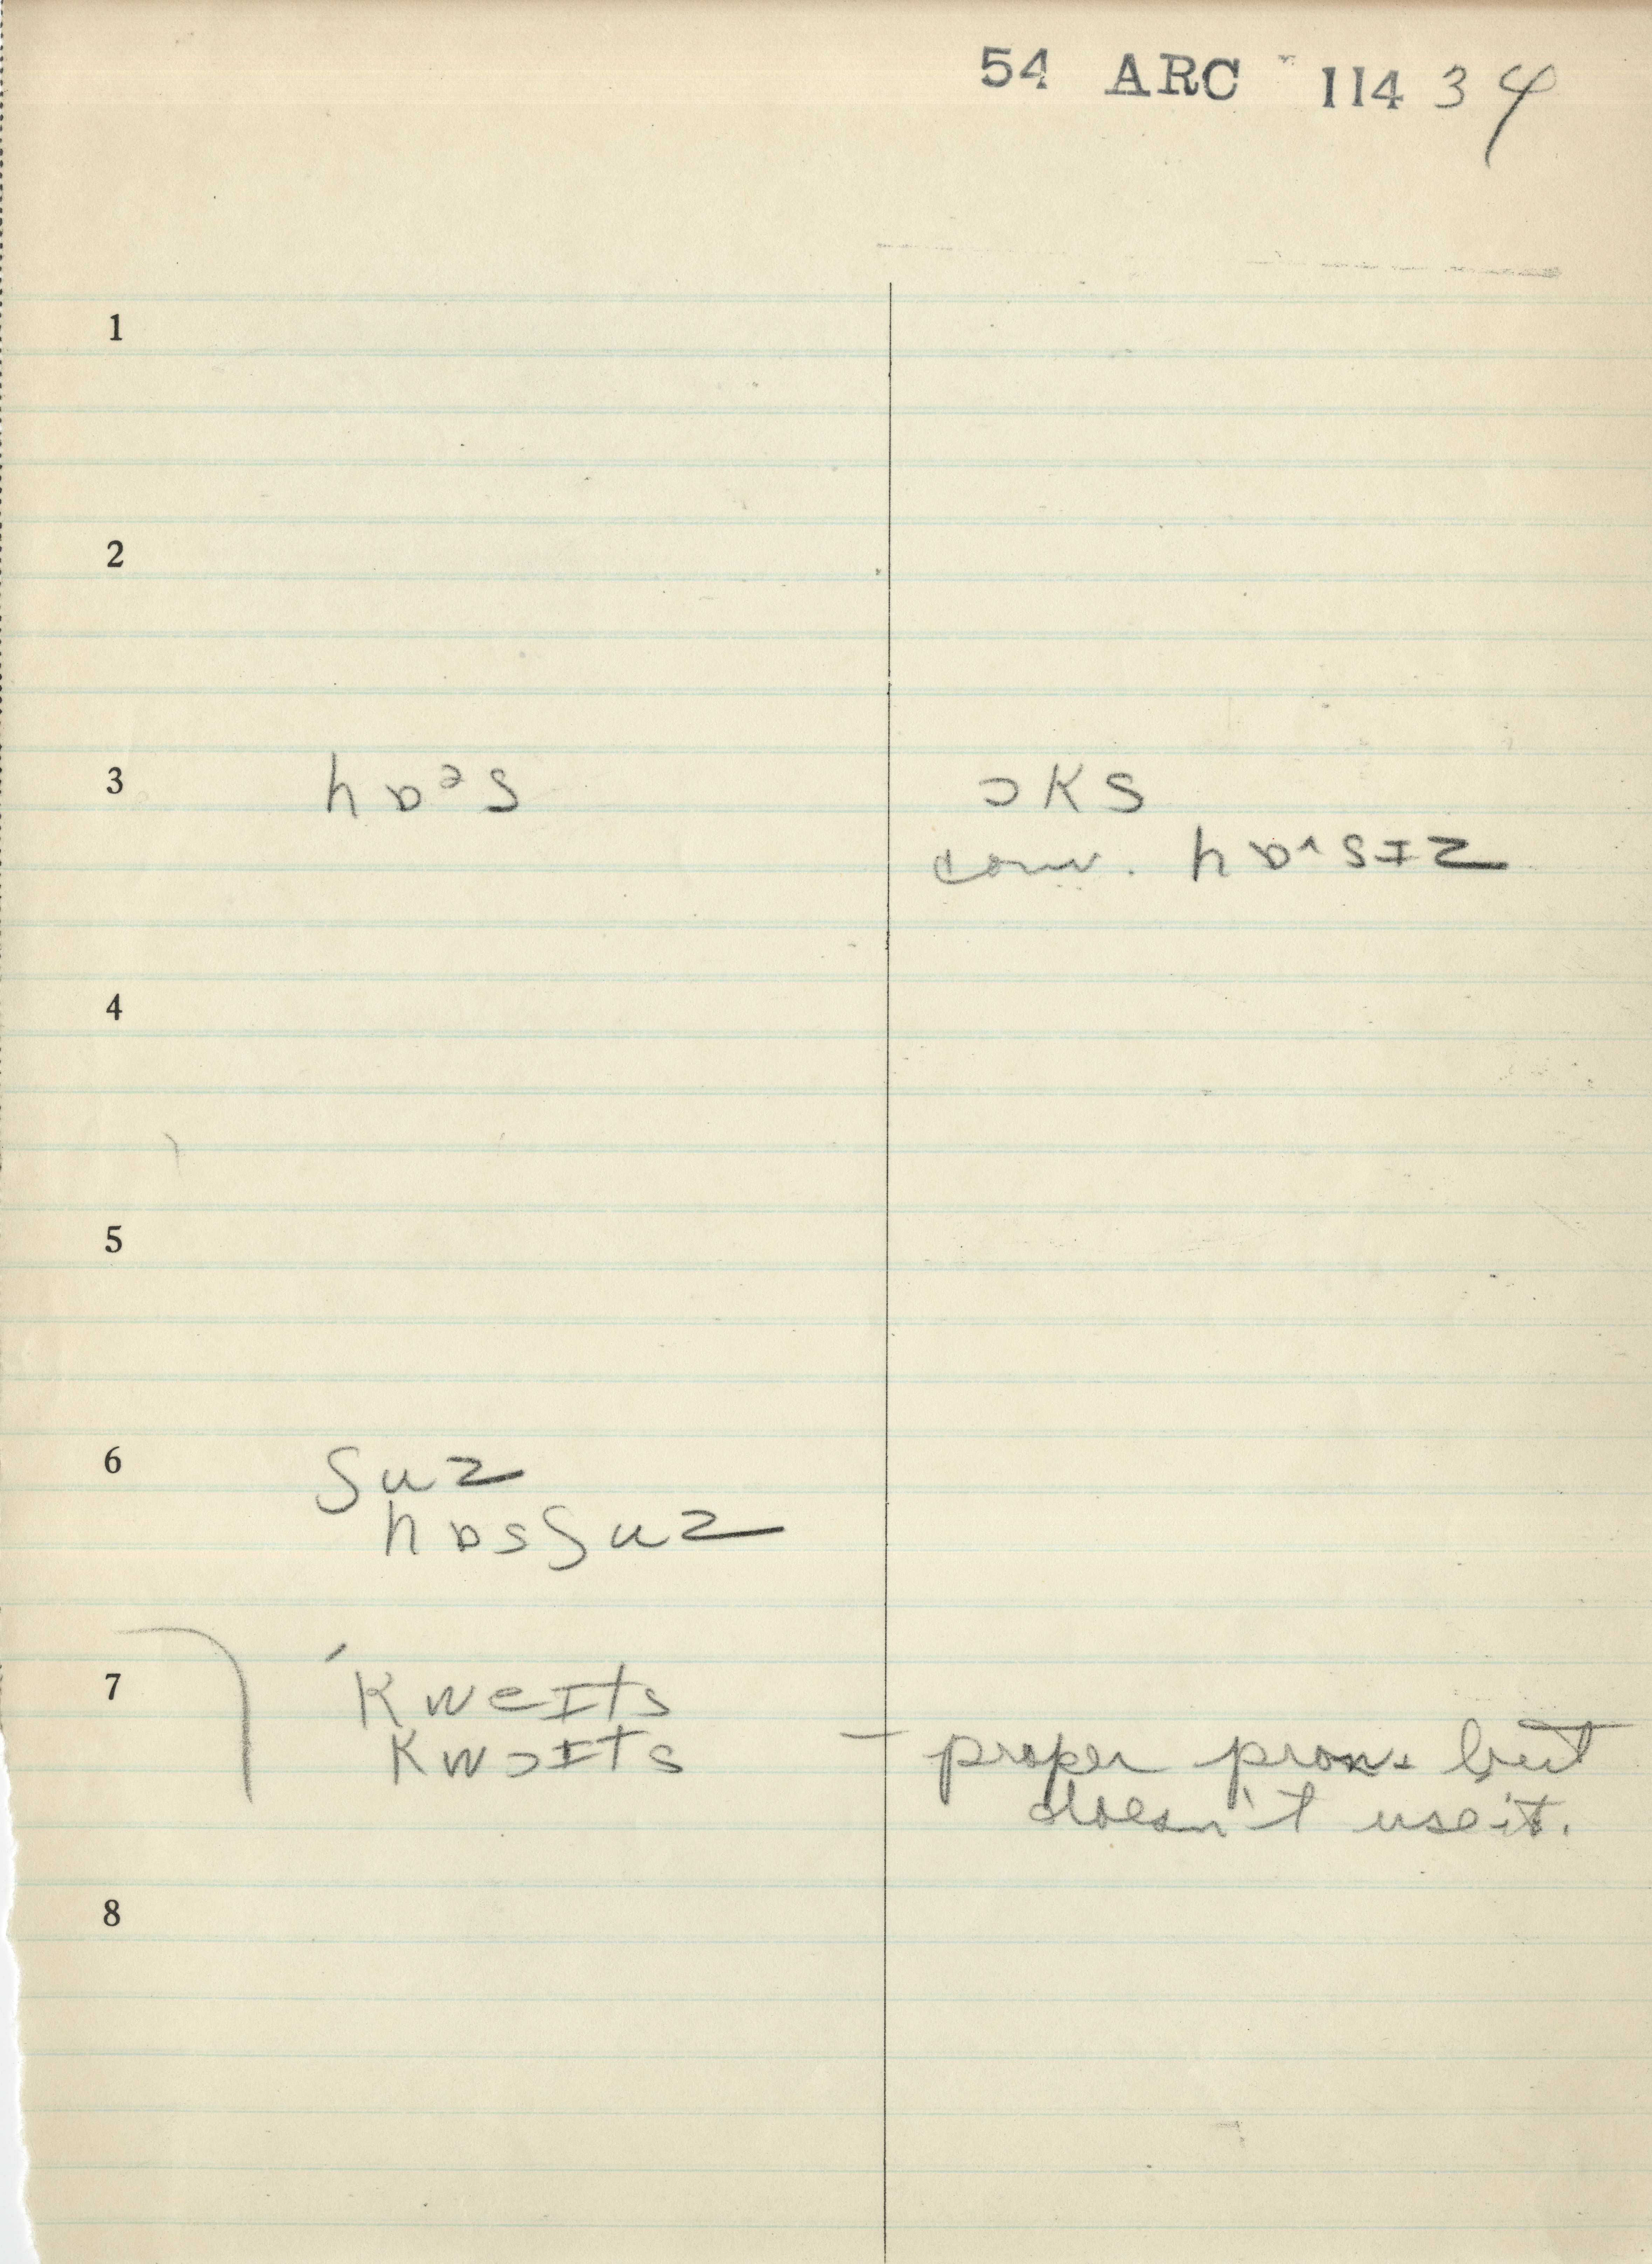 54 ARC 114 34
1
2
3 hɒᵊs ɔks
conv. hɒ^sɪz
4
5
6 ʃuz
hɒsʃuz
7 ˈkweɪts
kwɔɪts – proper pron. but
doesn't use it.
8